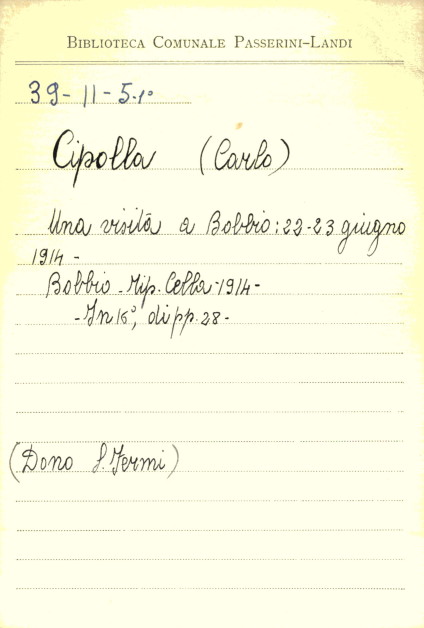 BIBLIOTECA COMUNALE PASSERINI-LANDI
39-11-5.1°
Cipolla (Carlo)
Una visita a Bobbio: 22-23 giugno
1914 -
Bobbio - Tip. Cella - 1914 -
- In 16°, di pp. 28 -
(Dono S. Fermi)